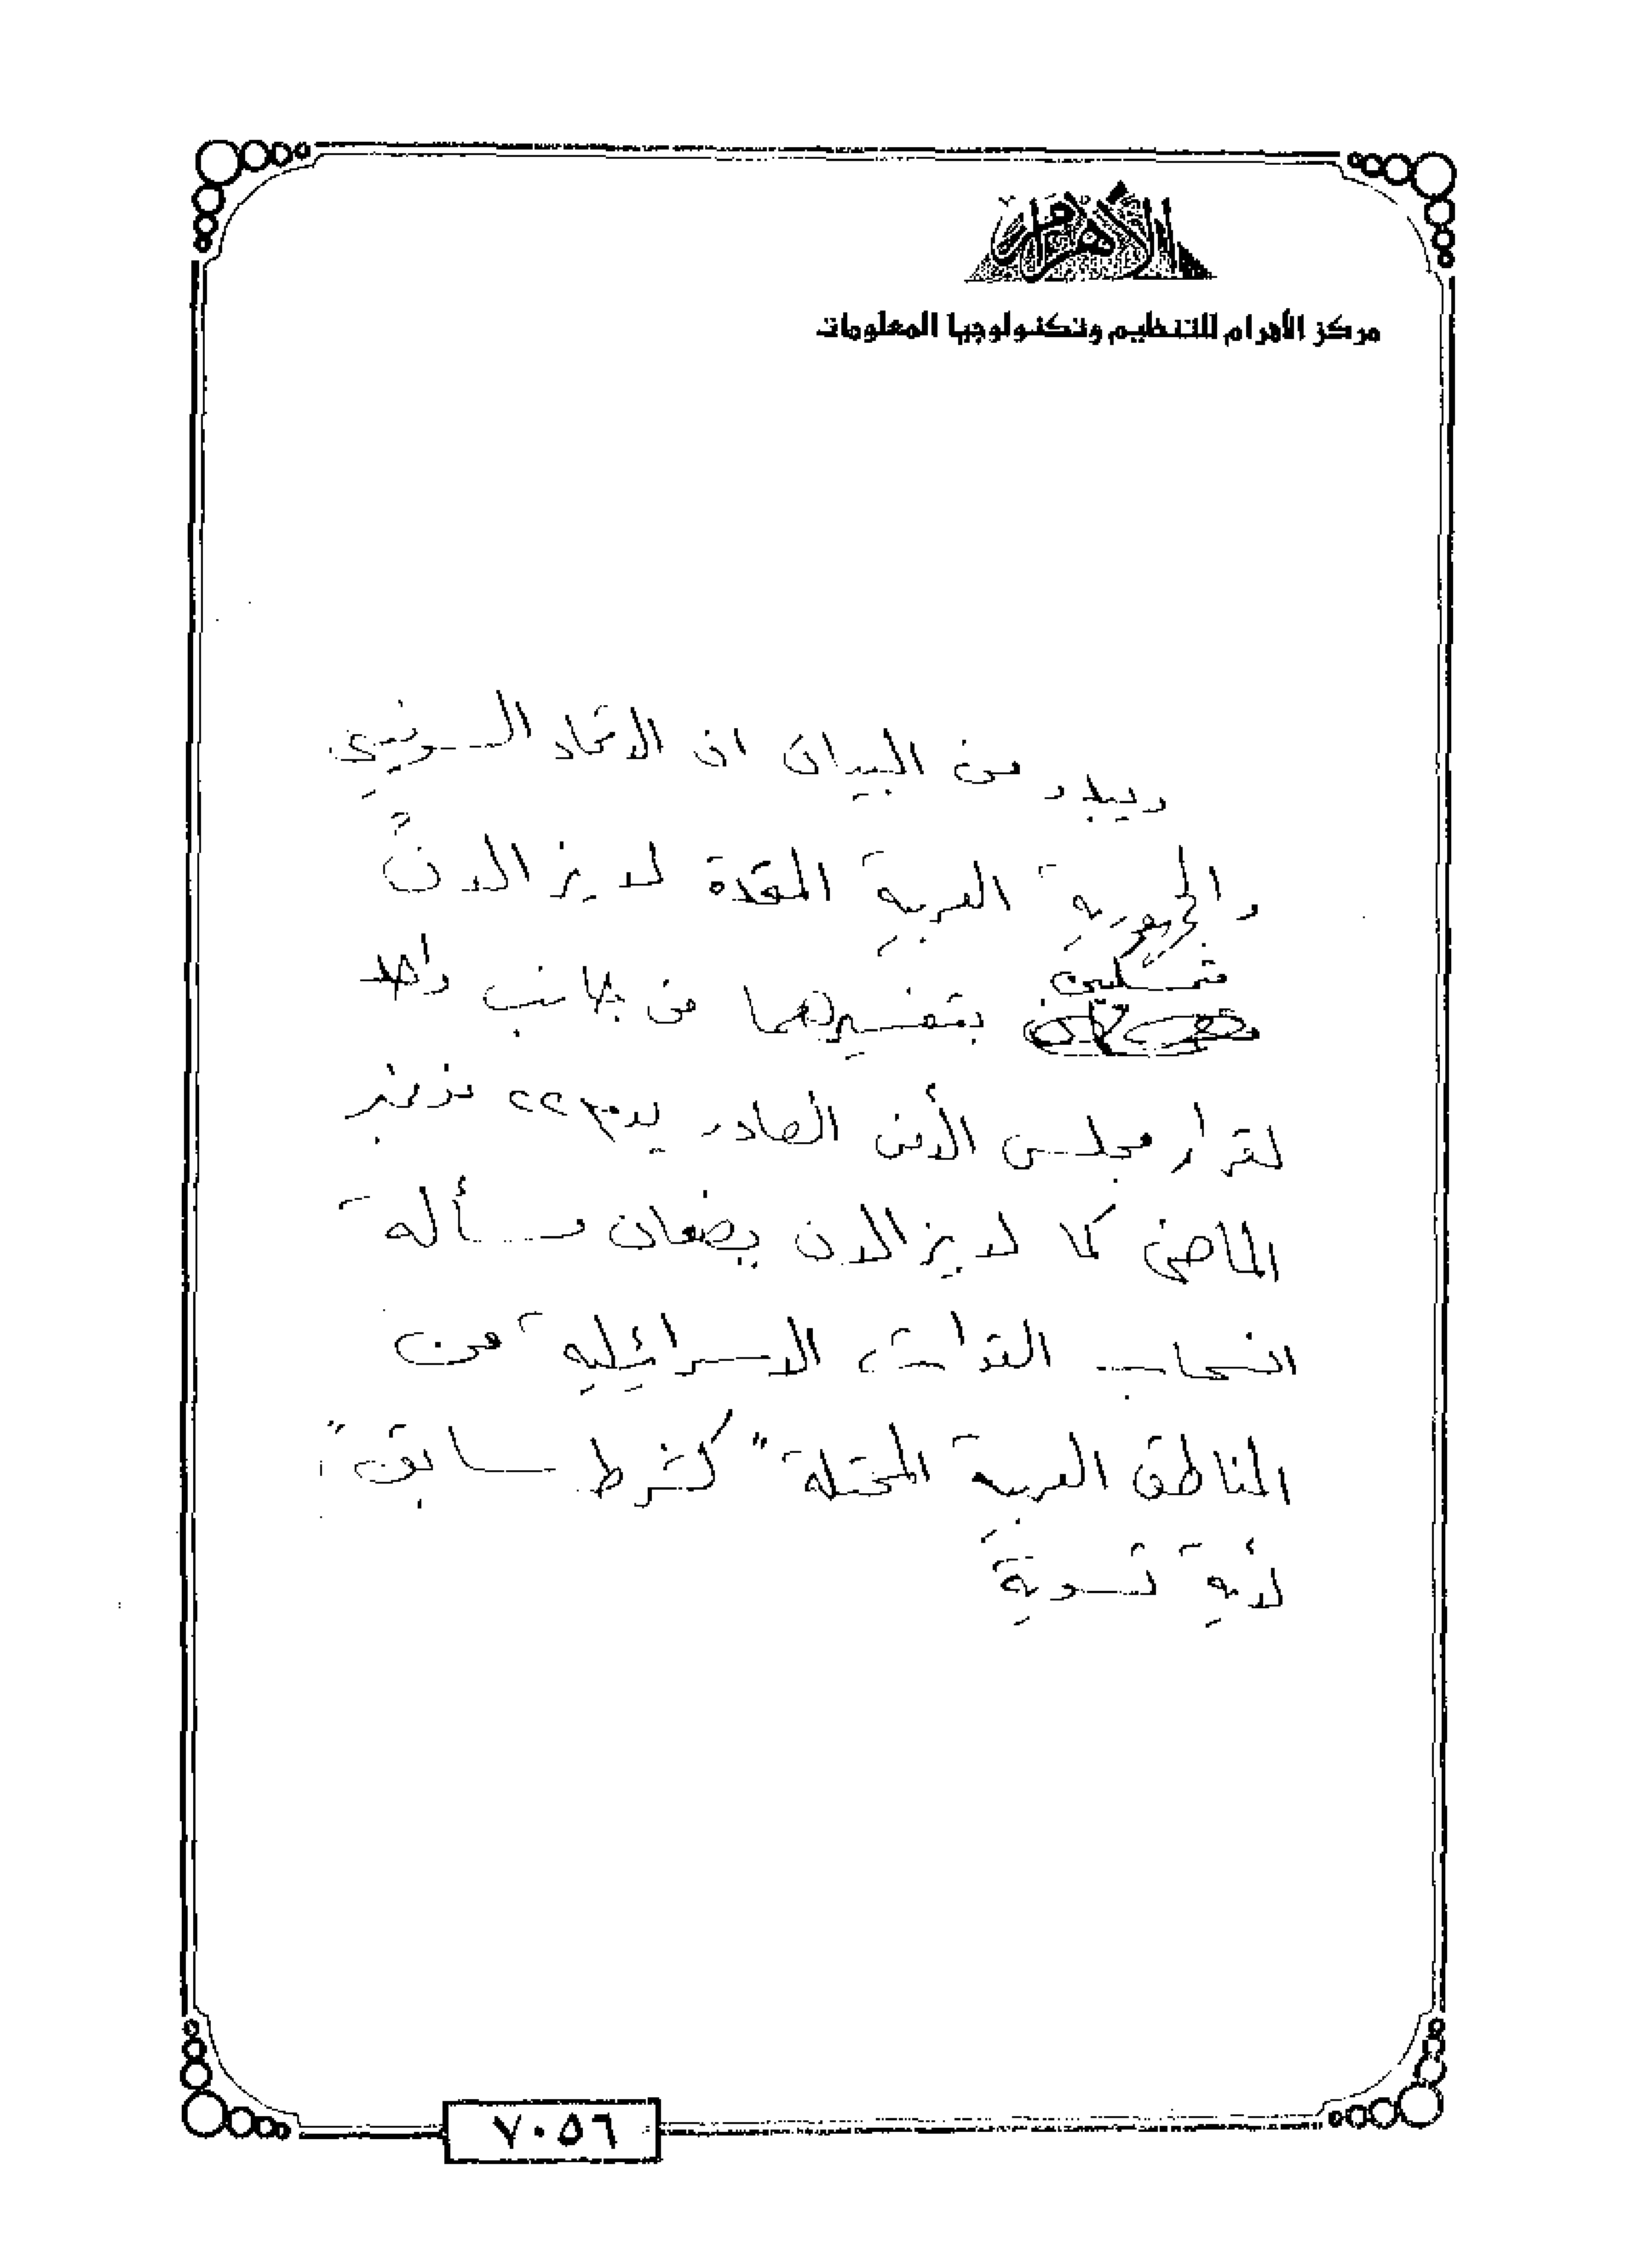 الأهرام
مركز الأهرام للتنظيم وتكنولوجيا المعلومات
ويبدو من البيان ان الاتحاد السوفيتى
والجمهورية العربية المتحدة لا يزالان
متمسكين
بتفسيرهما من جانب واحد
لقرار مجلس الأمن الصادر يوم ٢٢ نوفمبر
الماضى كما لا يزالان يضعان مسألة
انسحاب القوات الاسرائيلية من
المناطق العربية المحتلة "كشرط سابق"
لأية تسوية
٧٠٥٦